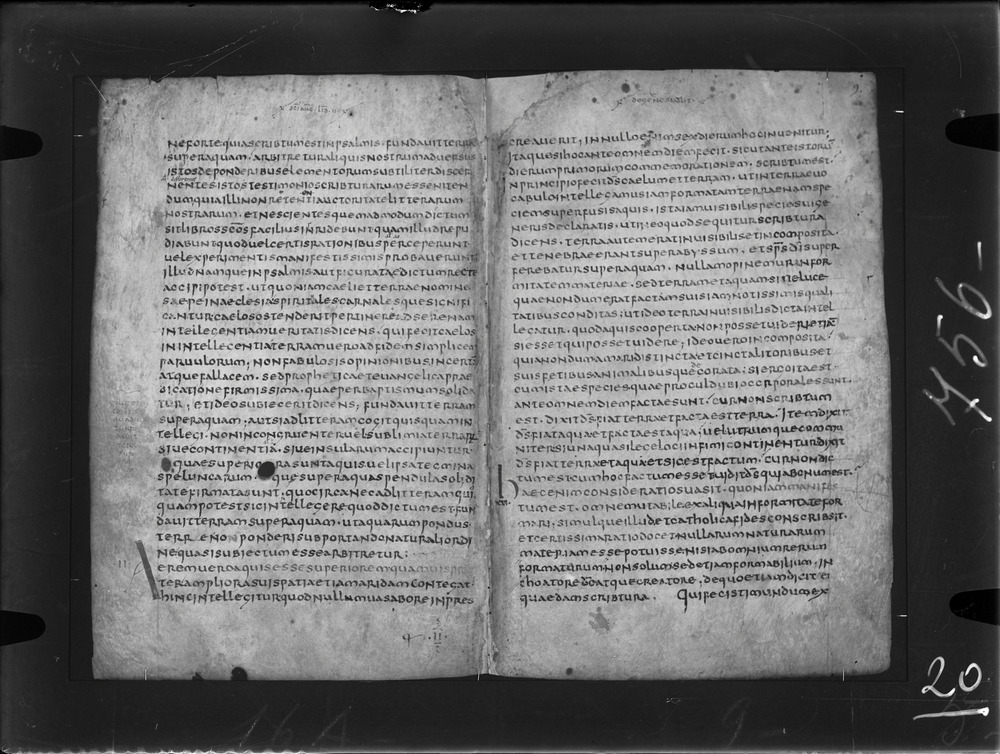 NEFORTEQUIASCRIPTUMESTINPSALMIS·FUNDAVITTERRAM
SUPERAQUAM·ARBITRETURALIQUISNOSTRUMADVERSUS
ISTOSDEPONDERIBUSELEMENTORUMSUBTILITERDISSER
NENTESISTOSTESTIMONIOSCRIPTURARUMESSENITEN
DUMQUIAILLINONRETENTIAUCTORITATELITTERARUM
NOSTRARUM·ETNESCIENTESQUEMADMODUMDICTUM
SITLIBROSSCOSFACILIUSINRIDEBUNTQUAMILLUDREPU
DIABUNTQUODVELCERTISRATIONIBUSPERCEPERUNT
VELEXPERIMENTISMANIFESTISSIMISPROBAVERUNT
ILLUDNAMQUEINPSALMISAUTFICURATAEDICTUMRECTE
ACCIPIPOTEST·UTQUONIAMCAELIETTERRAENOMINE
SAEPEINAECLESIASPIRITALESCARNALESQUESIGNIFI
CANTURCAELOSOSTENDERITPERTINERE
INTELLEGENTIAMVERITATISDICENS·QUIFECITCAELOS
ININTELLEGENTIATERRAMVEROADFIDEMSIMPLICEM
PARVULORUM·NONFABULOSISOPINIONIBUSINCERTĀ
ATQUEFALLACEM·SEDPROPHETICAETEVANGELICAPRAE
DICATIONEFIRMISSIMA·QUAEPERBAPTISMUMSOLIDA
TUR·ETIDEOSUBIECERITDICENS·FUNDAVITTERRAM
SUPERAQUAM·AUTSIADLITTERAMCOGITQUISQUAMIN
TELLEGI·NONINCONGRUENTERVELSUBLIMIATERRARŪ
SIVECONTINENTIA·SIVEINSULARUMACCIPIUNTUR·
QUAESUPERIORASUNTAQUISVELIPSATEGMINA
SPELUNCARUM·QUESUPERAQUASPENDULASOLIDI
TATEFIRMATASUNT·QUOCIRCANECADLITTERAMQUIS
QUAMPOTESTSICINTELLEGEREQUODDICTUMESTFUN
DAVITTERRAMSUPERAQUAM·UTAQUARUMPONDUS
TERRENOPONDERISUBPORTANDONATURALIORDI
NEQUASISUBIECTUMESSEARBITRETUR:
EREMVEROAQUISESSESUPERIOREMQUAMVISPER
TERAMPLIORASUISPATIAETIAMARIDAMCONTEGAT·
HINCINTELLEGITURQUODNULLUMVASABOREINPRES
·II·
CREAVERIT,INNULLOENIMSEXDIERUMHOCINVENITUR;
ITAQUESIHOCANTEOMNEMDIEMFECIT·SICUTANTEISTORŪ
DIERUMPRIMORUMCOMMEMORATIONEM·SCRIPTUMEST·
INPRINCIPIOFECITDSCAELUMETTERRAM·UTINTERRAEVO
CABULOINTELLEGAMUSIAMFORMATAMTERRAENAMSPE
CIEMSUPERFUSISAQUIS·ISTAIAMVISIBILISPECIESUIGE
NERISDECLARATIS·UTINEOQUODSEQUITURSCRIPTURA
DICENS·TERRAAUTEMERATINVISIBILISETINCOMPOSITA·
ETTENEBRAEERANTSUPERABYSSUM·ETSPSDISUPER
FEREBATURSUPERAQUAM·NULLAMOPINEMURINFOR
MITATEMMATERIAE·SEDTERRAMETAQUAMSINELUCE
QUAENONDUMERATFACTAMSUISIAMNOTISSIMISQUALI
TATIBUSCONDITAS·UTIDEOTERRAINVISIBILISDICTAINTEL
LEGATUR·QUODAQUISCOOPERTANONPOSSETVIDERIETIĀ
SIESSETQUIPOSSETVIDERE·IDEOVEROINCOMPOSITA·
QUIANONDUMAMARIDISTINCTAETCINCTALITORIBUSET
SUISFETIBUSANIMALIBUSQUEDECORATA·SIERGOITAEST·
CURISTAESPECIESQUAEPROCULDUBIOCORPORALESSUNT·
ANTEOMNEMDIEMFACTAESUNT·CURNONSCRIBTUM
EST·DIXITDSFIATTERRAETFACTAESTTERRA·ITEMDIXIT
DSFIATAQUAETFACTAESTAQUA·VELUTRUMQUECOMMU
NITERSIUNAQUASILEGELOCIINFIMICONTINENTURDIXIT
DSFIATTERRAETAQUAETSICESTFACTUM·CURNONDIC
TUMESTCUMHOCFACTUMESSETVIDITDSQUIABONUMEST·
HAECENIMCONSIDERATIOSUASIT·QUONIAMMANIFES
TUMEST·OMNEMUTABILEEXALIQUAINFORMITATEFOR
MARI·SIMULQUEILLUDETCATHOLICAFIDESCONSCRIBSIT·
ETCERTISSIMARATIODOCETNULLARUMNATURARUM
MATERIAMESSEPOTUISSENISIABOMNIUMRERUM
FORMATURUMNONSOLUMSEDETIAMFORMABILIUM·IN
CHOATOREDŌATQUECREATORE·DEQUOETIAMDICITEI
QUAEDAMSCRIBTURA· QUIFECISTIMUNDUMEX
756-
20